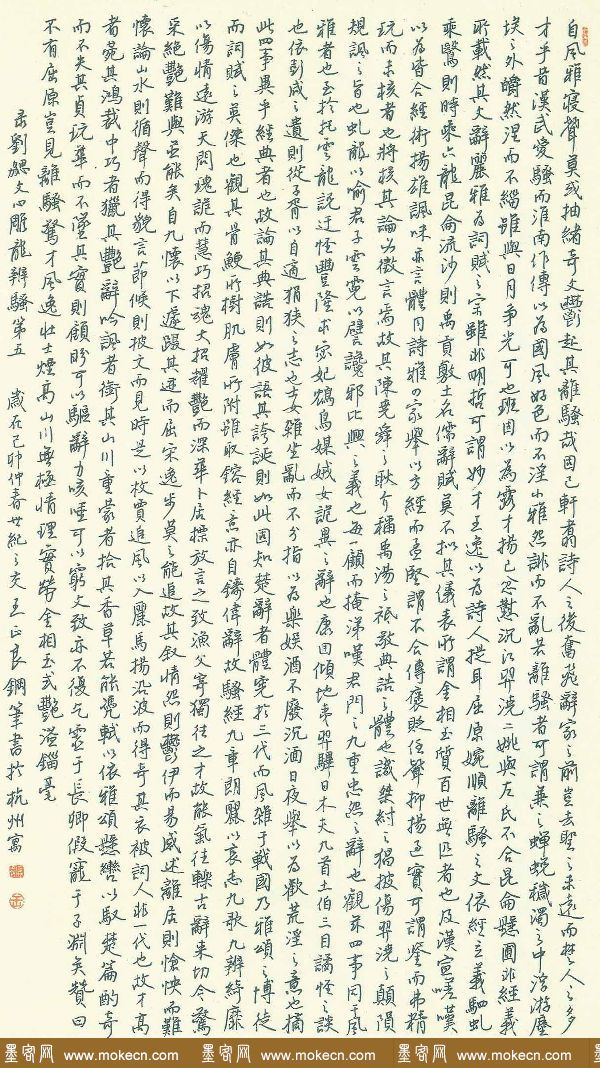 自風雅寢聲莫或抽緒奇文鬱起其離騷哉固已軒翥詩人之後奮飛辭家之前豈去聖之未遠而楚人之多
才乎昔漢武愛騷而淮南作傳以為國風好色而不淫小雅怨誹而不亂若離騷者可謂兼之蟬蛻穢濁之中浮游塵
埃之外皭然涅而不緇雖與日月爭光可也班固以為露才揚己忿懟沉江羿澆二姚與左氏不合昆侖懸圃非經義
所載然其文辭麗雅為詞賦之宗雖非明哲可謂妙才王逸以為詩人提耳屈原婉順離騷之文依經立義駟虬
乘鷖則時乘六龍昆侖流沙則禹貢敷土名儒辭賦莫不擬其儀表所謂金相玉質百世無匹者也及漢宣嗟嘆
以為皆合經術揚雄諷味亦言體同詩雅四家舉以方經而孟堅謂不合傳褒貶任聲抑揚過實可謂鑒而弗精
玩而未核者也將核其論必徵言焉故其陳堯舜之耿介稱禹湯之祗敬典誥之體也譏桀紂之猖披傷羿澆之顛隕
規諷之旨也虬龍以喻君子雲霓以譬讒邪比興之義也每一顧而掩涕嘆君門之九重忠怨之辭也觀茲四事同于風
雅者也至於托雲龍說迂怪豐隆求宓妃鴆鳥媒娀女詭異之辭也康回傾地夷羿彃日木夫九首土伯三目譎怪之談
也依彭咸之遺則從子胥以自適狷狹之志也士女雜坐亂而不分指以為樂娛酒不廢沉湎日夜舉以為歡荒淫之意也摘
此四事異乎經典者也故論其典誥則如彼語其誇誕則如此固知楚辭者體憲於三代而風雜于戰國乃雅頌之博徒
而詞賦之英傑也觀其骨鯁所樹肌膚所附雖取鎔經意亦自鑄偉辭故騷經九章朗麗以哀志九歌九辯綺靡
以傷情遠游天問瑰詭而慧巧招魂大招耀艷而深華卜居標放言之致漁父寄獨往之才故能氣往轢古辭來切今驚
采絕艷難與並能矣自九懷以下遽躡其跡而屈宋逸步莫之能追故其敘情怨則鬱伊而易感述離居則愴怏而難
懷論山水則循聲而得貌言節候則披文而見時是以枚賈追風以入麗馬揚沿波而得奇其衣被詞人非一代也故才高
者菀其鴻裁中巧者獵其艷辭吟諷者銜其山川童蒙者拾其香草若能憑軾以依雅頌懸轡以馭楚篇酌奇
而不失其貞玩華而不墜其實則顧盼可以驅辭力咳唾可以窮文致亦不復乞靈于長卿假寵于子淵矣贊曰
不有屈原豈見離騷驚才風逸壯士煙高山川無極情理實勞金相玉式艷溢錙毫
劉勰文心雕龍辨騷第五 歲在己卯仲春世紀之交王正良鋼筆書於杭州寓
墨客网 www.mokecn.com 墨客网 www.mokecn.com 墨客网 www.mokecn.com